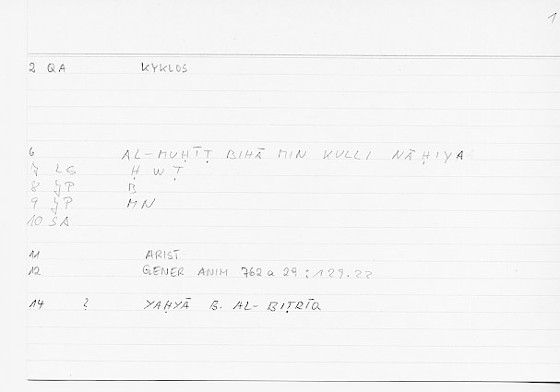 1
2 QA KYKLOS
6 AL-MUḤĪṬ BIHĀ MIN KULLI NĀḤIYA
7 LG Ḥ W Ṭ
8 JP B
9 JP MN
10 SA
11 ARIST
12 GENER ANIM 762 a 29 : 129.22
14 ? YAḤYĀ B. AL-BIṬRĪQ